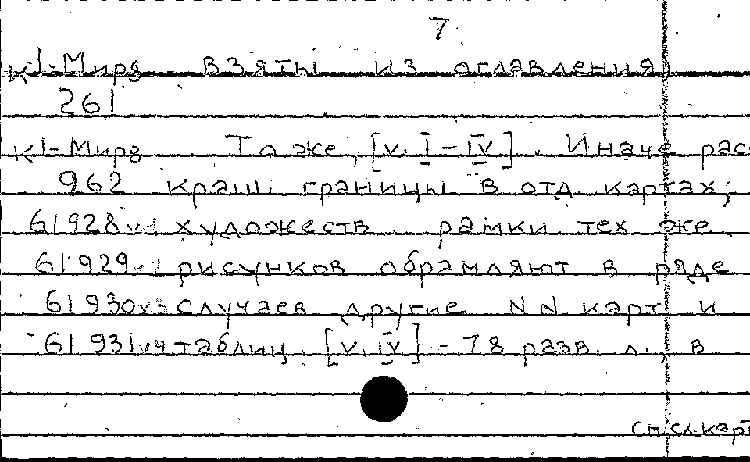 7.
К1-Мирв взяты из оглавления)
261
К1-Мирв То же, [v. I-IV]. Иначе рас
962 краш. границы в отд. картах;
61928 v.1 художеств. рамки тех же
61929 v.2 рисунков обрамляют в ряде
61930 v.3 случаев другие NN карт и
61931 v.4 таблиц. [v. IV] - 78 разв. л., в
см. сл. карт